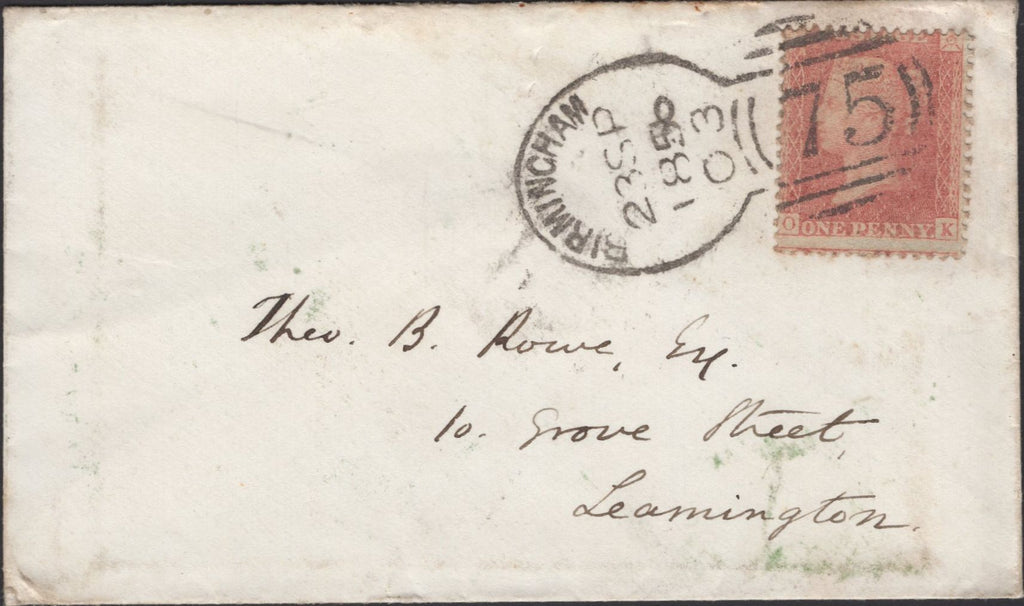 BIRMINGHAM
23SP
1858
03
75
O ONE PENNY K
Theo. B. Rowe, Esq.
10. Grove Street,
Leamington.